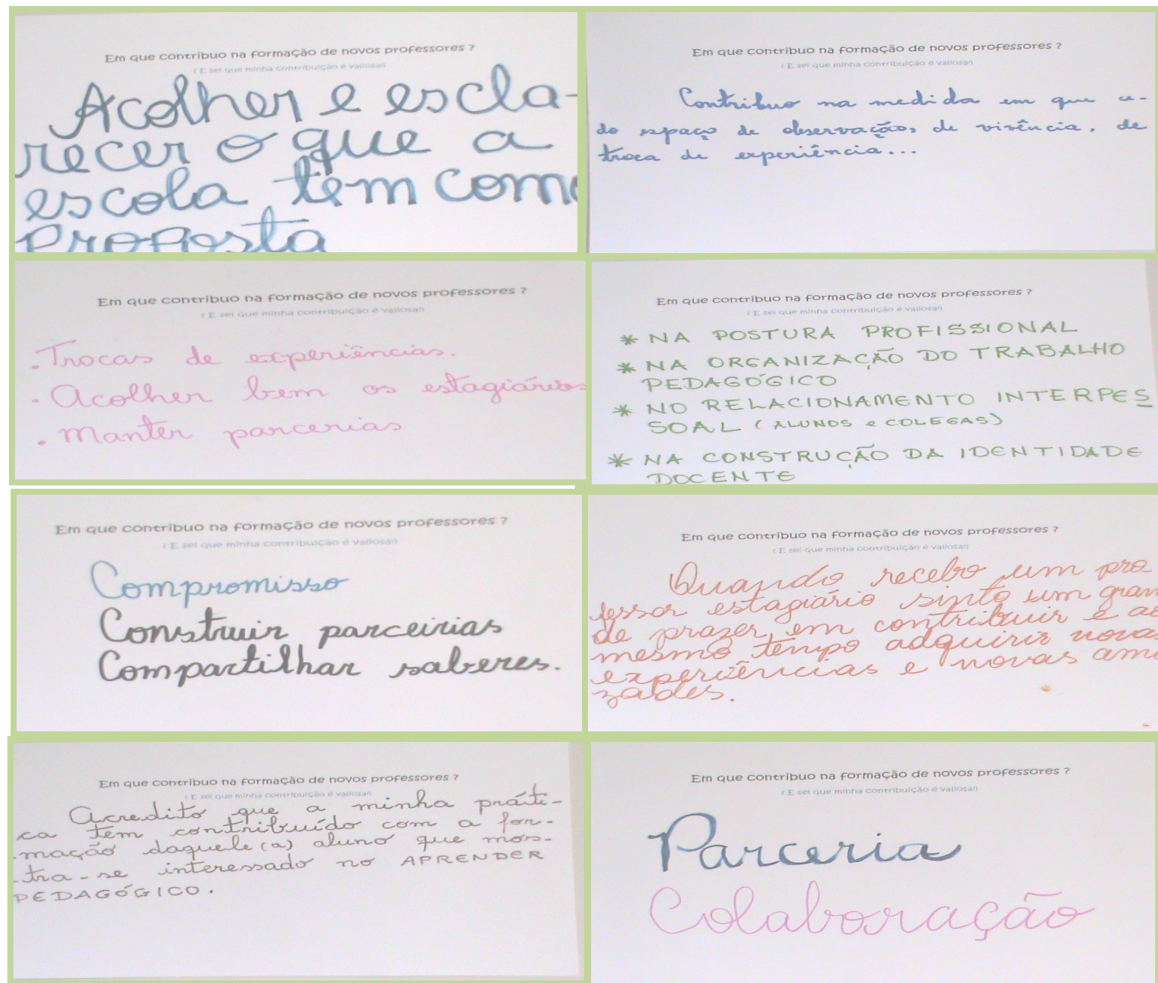 Em que contribuo na formação de novos professores ?
( E sei que minha contribuição é valiosa)
Acolher e escla-
recer o que a
escola tem como
proposta
Em que contribuo na formação de novos professores ?
( E sei que minha contribuição é valiosa)
Contribuo na medida em que ce-
do espaço de observação, de vivência, de
troca de experiência...
Em que contribuo na formação de novos professores ?
( E sei que minha contribuição é valiosa)
. Trocas de experiências.
. Acolher bem os estagiários
. Manter parcerias
Em que contribuo na formação de novos professores ?
( E sei que minha contribuição é valiosa)
* NA POSTURA PROFISSIONAL
* NA ORGANIZAÇÃO DO TRABALHO
PEDAGÓGICO
* NO RELACIONAMENTO INTERPES
SOAL ( ALUNOS e COLEGAS)
* NA CONSTRUÇÃO DA IDENTIDADE
DOCENTE
Em que contribuo na formação de novos professores ?
( E sei que minha contribuição é valiosa)
Compromisso
Construir parceirias
Compartilhar saberes.
Em que contribuo na formação de novos professores ?
( E sei que minha contribuição é valiosa)
Quando recebo um pro
fessor estagiário sinto um gran
de prazer em contribuir e ao
mesmo tempo adquirir novas
experiências e novas ami
zades.
Em que contribuo na formação de novos professores ?
( E sei que minha contribuição é valiosa)
Acredito que a minha práti-
ca tem contribuído com a for-
mação daquele(a) aluno que mos-
tra-se interessado no APRENDER
PEDAGÓGICO.
Em que contribuo na formação de novos professores ?
( E sei que minha contribuição é valiosa)
Parceria
Colaboração